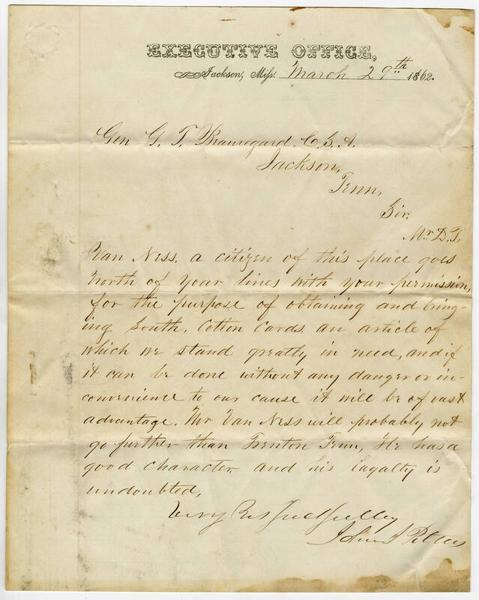 EXECUTIVE OFFICE,
Jackson, Miss. March 29th 1862.
Gen G. T. Beauregard C.S.A.
Jackson,
Tenn,
Sir,
Mr D. T.
Van Ness, a citizen of this place goes
North of your lines with your permission,
for the purpose of obtaining and bring-
ing South, Cotton Cards an article of
which we stand greatly in need, and if
it can be done without any danger or in-
convenience to our cause it will be of vast
advantage. Mr Van Ness will probably not
go further than Trenton Tenn, He has a
good character and his loyalty is
undoubted,
Very Respectfully
John J Pettus